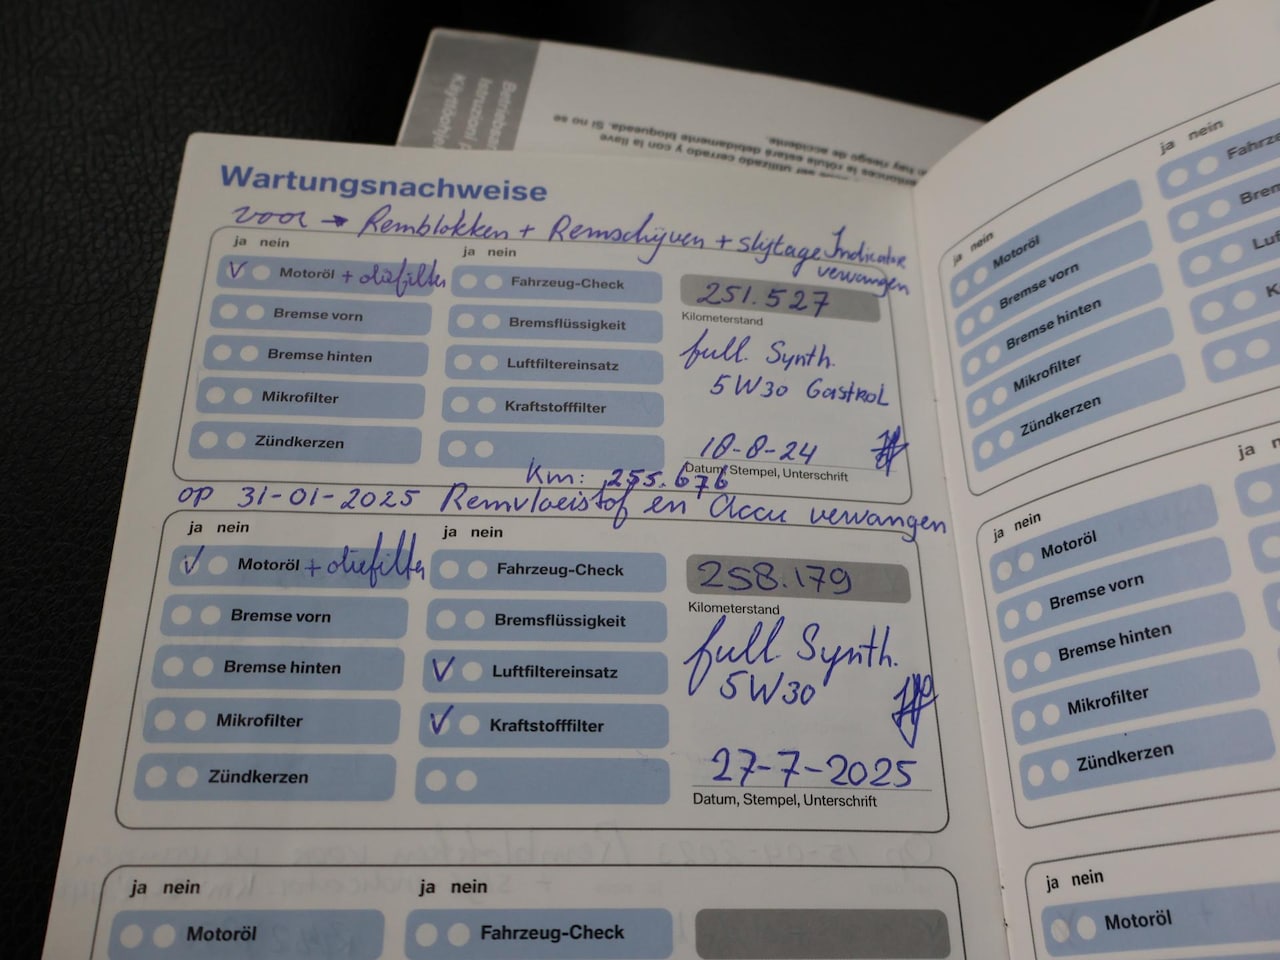 Wartungsnachweise
voor → Remblokken + Remschijven + slijtage Indicator
vervangen
ja nein
Motoröl + oliefilter
Bremse vorn
Bremse hinten
Mikrofilter
Zündkerzen
ja nein
Fahrzeug-Check
Bremsflüssigkeit
Luftfiltereinsatz
Kraftstofffilter
251.527
Kilometerstand
full. Synth.
5W30 Castrol
18-8-24
Datum, Stempel, Unterschrift
Km: 255.676
op 31-01-2025 Remvloeistof en Accu vervangen
ja nein
Motoröl + oliefilter
Bremse vorn
Bremse hinten
Mikrofilter
Zündkerzen
ja nein
Fahrzeug-Check
Bremsflüssigkeit
Luftfiltereinsatz
Kraftstofffilter
258.179
Kilometerstand
full. Synth.
5W30
27-7-2025
Datum, Stempel, Unterschrift
ja nein
Motoröl
ja nein
Fahrzeug-Check
ja nein
Motoröl
Bremse vorn
Bremse hinten
Mikrofilter
Zündkerzen
ja nein
ja nein
Motoröl
Bremse vorn
Bremse hinten
Mikrofilter
Zündkerzen
ja
ja nein
Motoröl